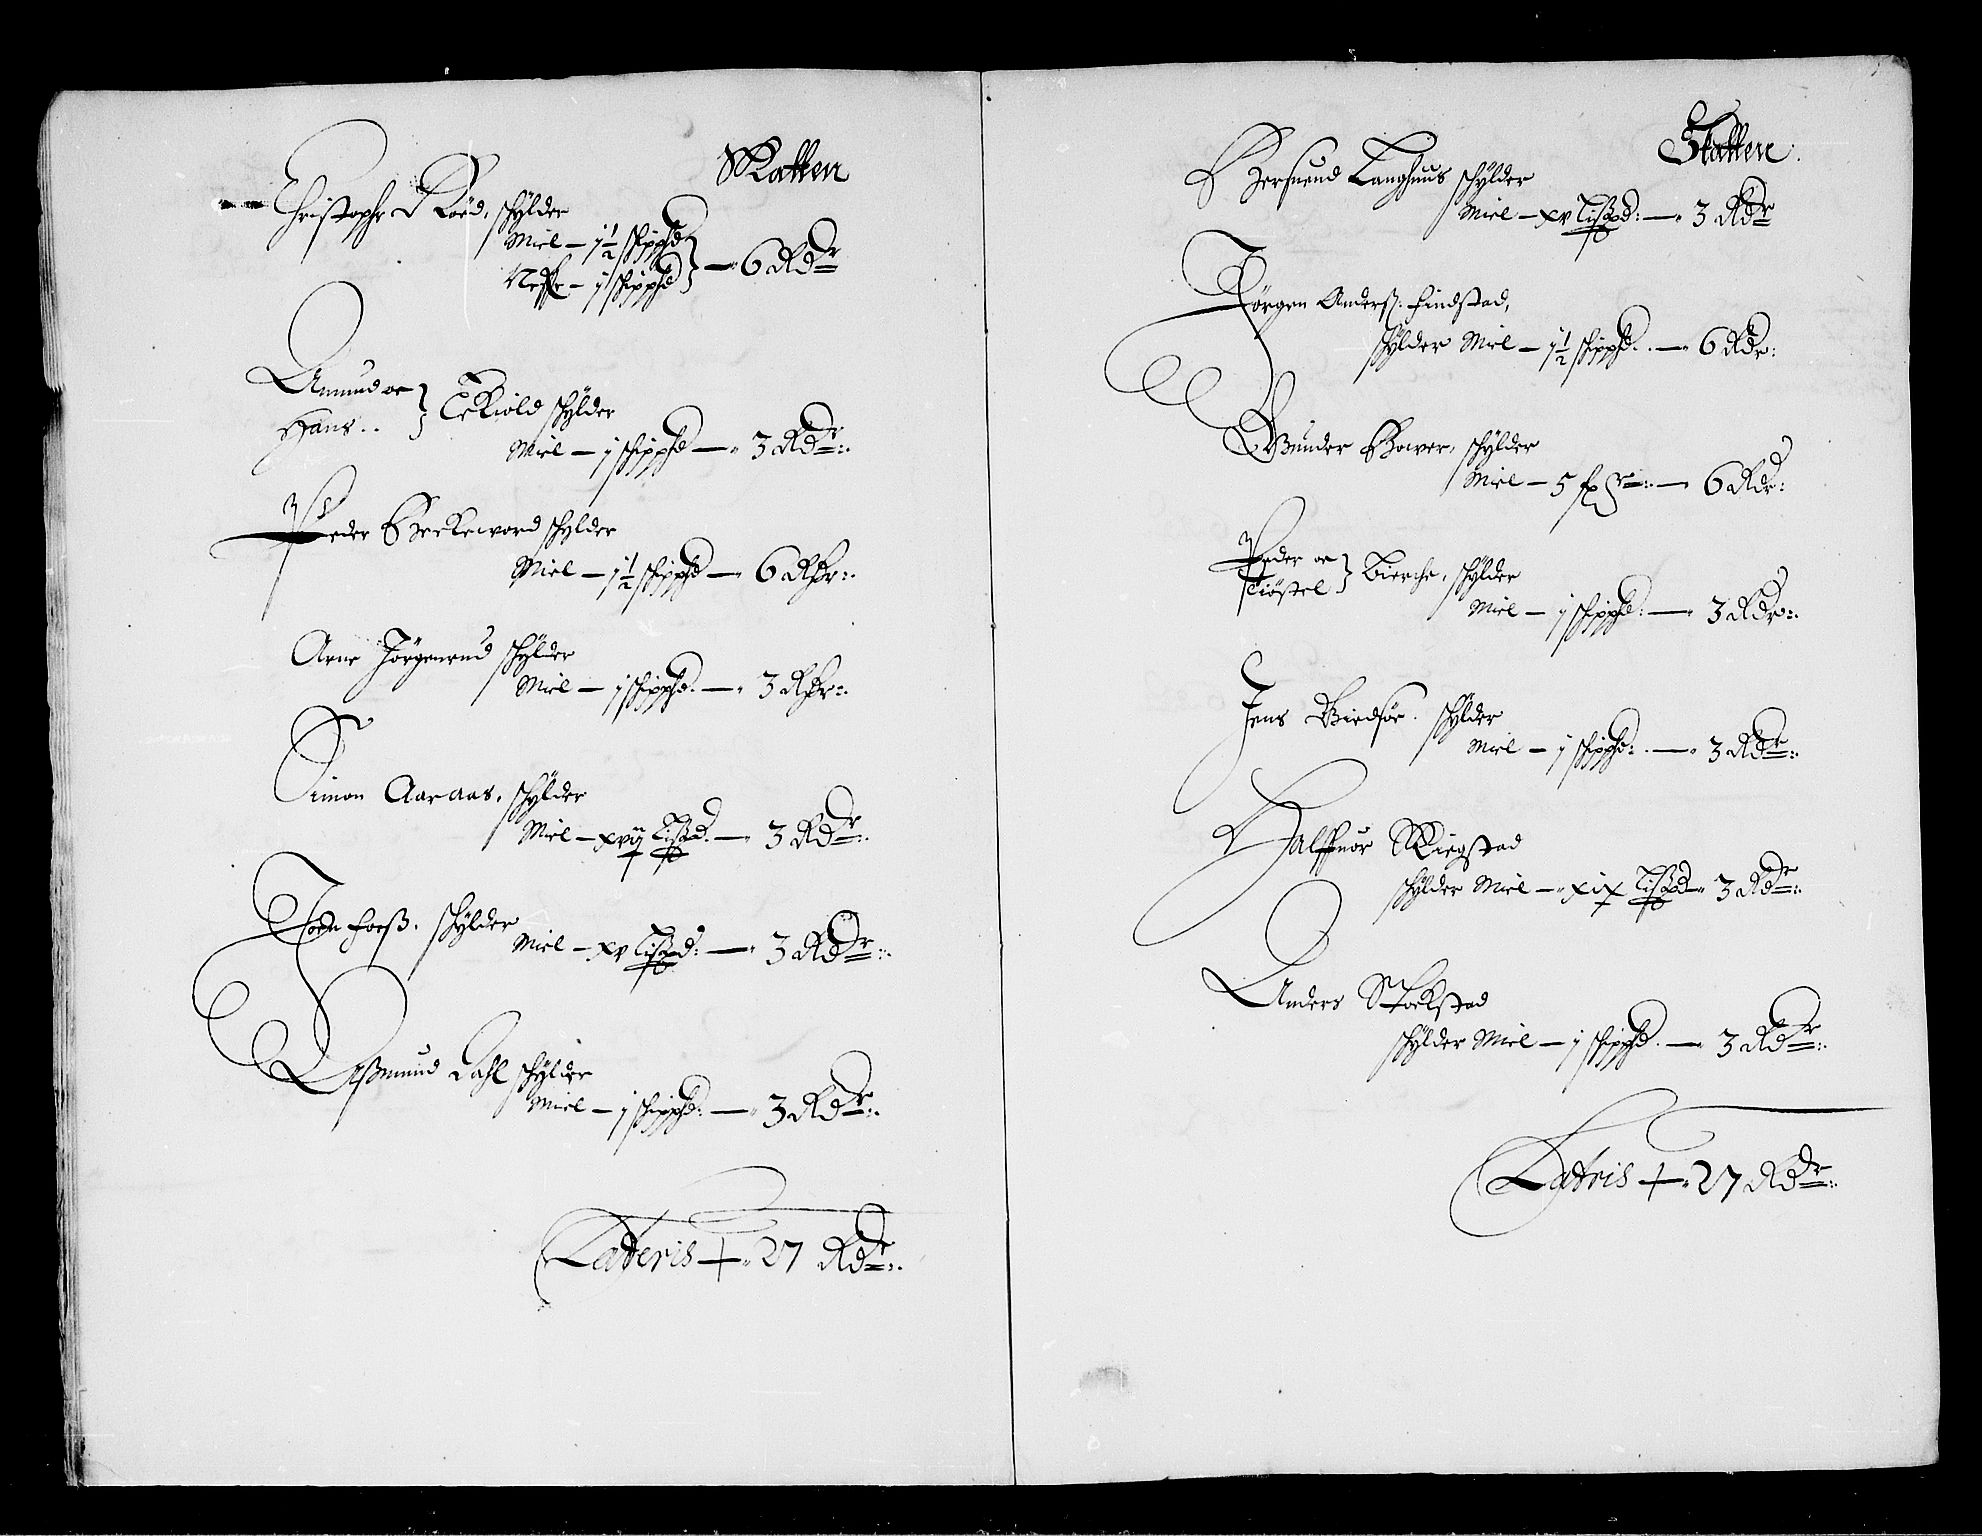 Skatten
Christopher Røed, schylder
Miel - j ½ schippd
Neffe - j schippd } - 6 Rdr
Amund oc
Hans.. } Eskiold schylder
Miel - j schippd - 3 Rdr:
Peder Beckeword schylder
Miel - j ½ schippd - 6 Rdr:
Arne Jörgenrud schylder
Miel - j schippd. - 3 Rdr:
Simon Aaraas, schylder
Miel - xvij Lispd. - 3 Rdr:
Joen Foeß, schylder
Miel - xv Lispd: - 3 Rdr:
Aßmund Dahl schylder
Miel - j schippd: - 3 Rdr:
Lateris + 27 Rdr:
Skatten
Langhuus schylder
Miel - xv Lispd: - 3 Rdr
Jörgen Anderß: Findstad,
schylder Miel - j ½ schippd.. - 6 Rdr:
Gunder Bower, schylder
Miel - 5 - 6 Rdr:
Peder oc
Kiöstel } Bierche, schylder
Miel - j schippd: - 3 Rdr:
Jens Giedsöe. schylder
Miel - j schippd:. - 3 Rdr:
Halffuor Skiegstad
schylder Miel - xix Lispd - 3 Rdr:
Anders Stockstad
schylder Miel - j schippd. - 3 Rdr:
Latris + 27 Rdr: